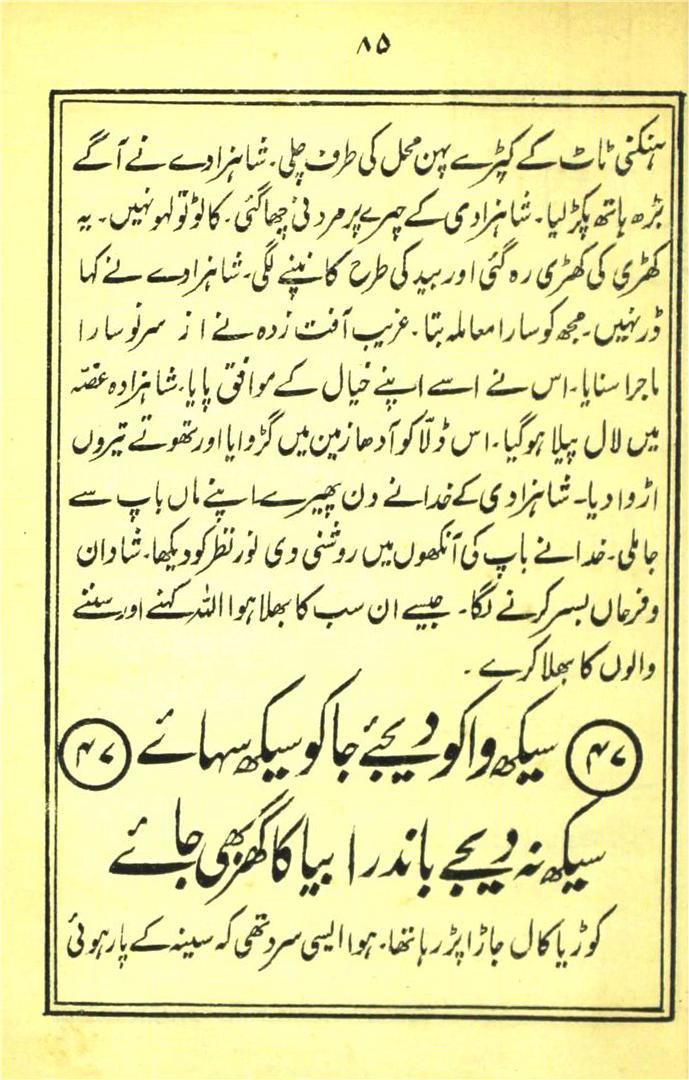 ۸۵
ہنکنی ٹاٹ کے کپڑے پہن محل کی طرف چلی۔ شاہزادے نے آگے
بڑھ ہاتھ پکڑ لیا۔ شاہزادی کے چہرے پر مردنی چھا گئی۔ کاٹو تو لہو نہیں۔ یہ
کھڑی کی کھڑی رہ گئی اور بید کی طرح کانپنے لگی۔ شاہزادے نے کہا
ڈر نہیں۔ مجھ کو سارا معاملہ بتا۔ غریب آفت زدہ نے از سر نو سارا
ماجرا سنایا۔ اس نے اسے اپنے خیال کے موافق پایا۔ شاہزادہ غصّہ
میں لال پیلا ہو گیا۔ اس ڈلّا کو آدھا زمین میں گڑوایا اور تھوتے تیروں
اڑوا دیا۔ شاہزادی کے خدا نے دن پھیرے اپنے ماں باپ سے
جا ملی۔ خدا نے باپ کی آنکھوں میں روشنی دی نور نظر کو دیکھا۔ شادان
و فرحاں بسر کرنے لگا۔ جیسے ان سب کا بھلا ہوا اللہ کہنے اور سننے
والوں کا بھلا کرے۔
۴۷ سیکھ وا کو دیجئے جا کو سیکھ سہائے ۴۷
سیکھ نہ دیجے باندرا بیا کا گھر بھی جائے
کوڑیا کال جاڑا پڑ رہا تھا۔ ہوا ایسی سرد تھی کہ سینہ کے پار ہوئی